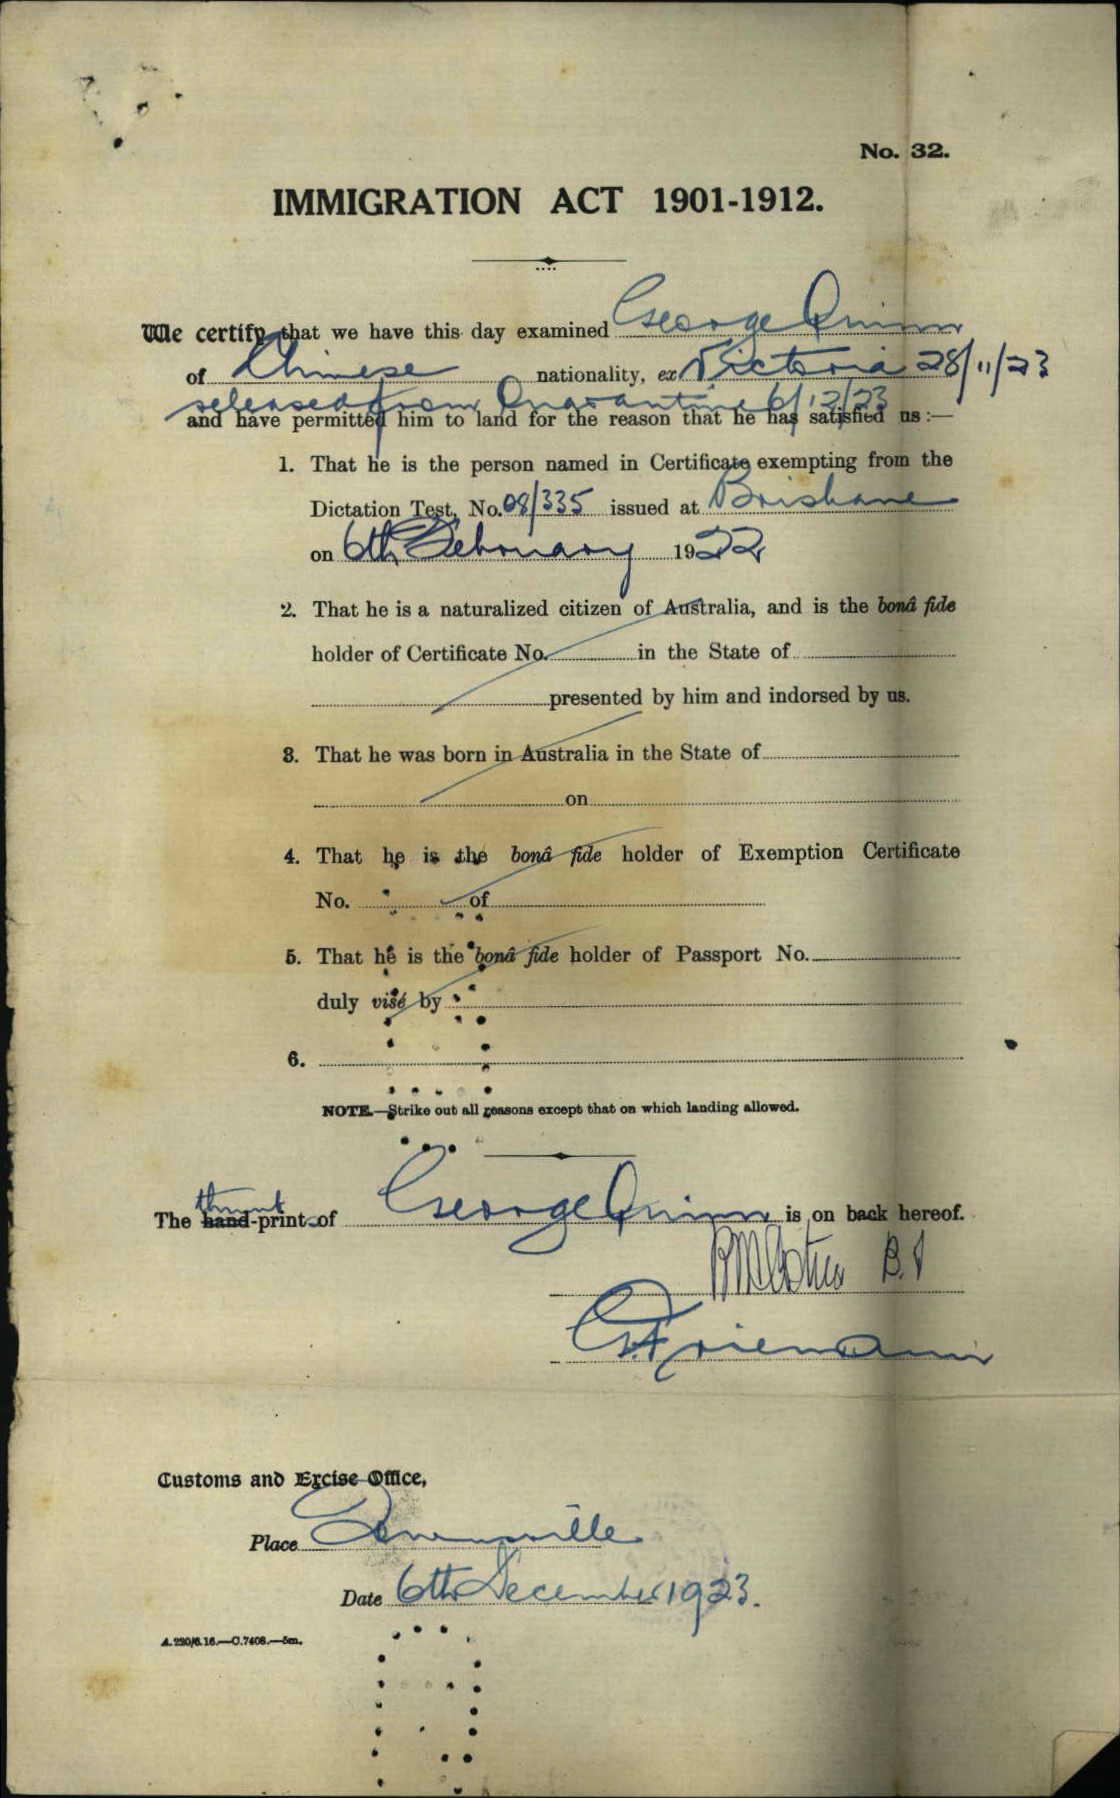 No. 32.
IMMIGRATION ACT 1901-1912.
We certify that we have this day examined George Quinn
of Chinese nationality, ex Victoria 28/11/23
released from Quarantine 6/12/23
and have permitted him to land for the reason that he has satisfied us :—
1. That he is the person named in Certificate exempting from the
Dictation Test, No. 08/335 issued at Brisbane
on 6th February 1922
2. That he is a naturalized citizen of Australia, and is the bonâ fide
holder of Certificate No. in the State of
presented by him and indorsed by us.
3. That he was born in Australia in the State of
on
4. That he is the bonâ fide holder of Exemption Certificate
No. of
5. That he is the bonâ fide holder of Passport No.
duly visé by
6.
NOTE.—Strike out all reasons except that on which landing allowed.
thumb
The hand-print of George Quinn is on back hereof.
Customs and Excise Office,
Place Townsville
Date 6th December 1923.
A.220/6.16.—C.7408.—5m.